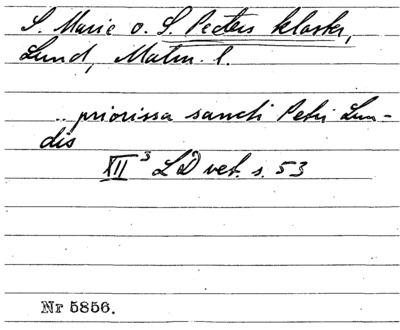 S. Marie o. S. Peters kloster,
Lund, Malm. l.
.. priorissa sancti Petri Lun-
dis
XII³ LD vet. s. 53
Nr 5856.